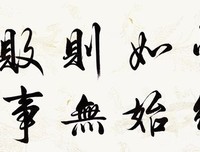 如始
則無
敗事